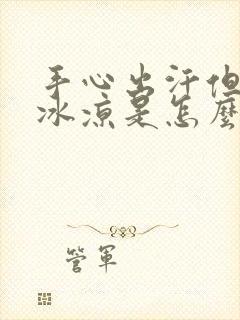 手心出汗但
冰凉是怎麽
管军